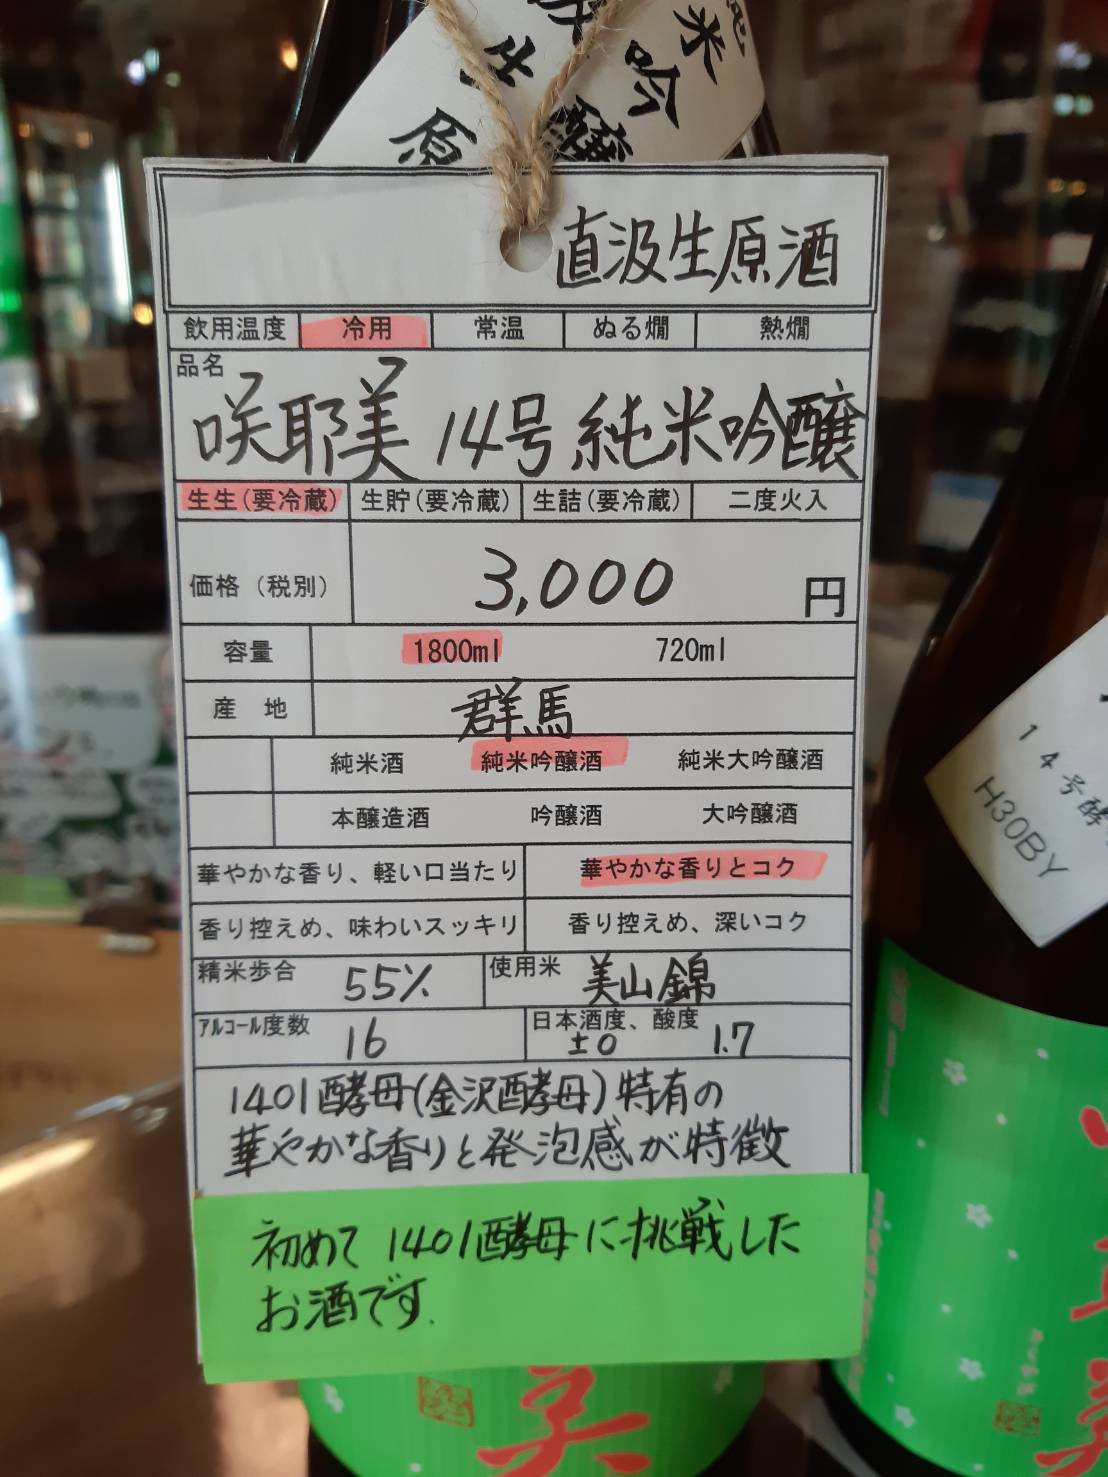 純米吟醸
生原
直汲生原酒
飲用温度 冷用 常温 ぬる燗 熱燗
品名
咲耶美 14号 純米吟醸
生生(要冷蔵) 生貯(要冷蔵) 生詰(要冷蔵) 二度火入
価格（税別） 3,000 円
容量 1800ml 720ml
産 地 群馬
純米酒 純米吟醸酒 純米大吟醸酒
本醸造酒 吟醸酒 大吟醸酒
華やかな香り、軽い口当たり 華やかな香りとコク
香り控えめ、味わいスッキリ 香り控えめ、深いコク
精米歩合 55% 使用米 美山錦
ｱﾙｺｰﾙ度数 16 日本酒度、酸度 ±0 1.7
1401酵母(金沢酵母)特有の
華やかな香りと発泡感が特徴
初めて1401酵母に挑戦した
お酒です.
14号酵
H30BY
美